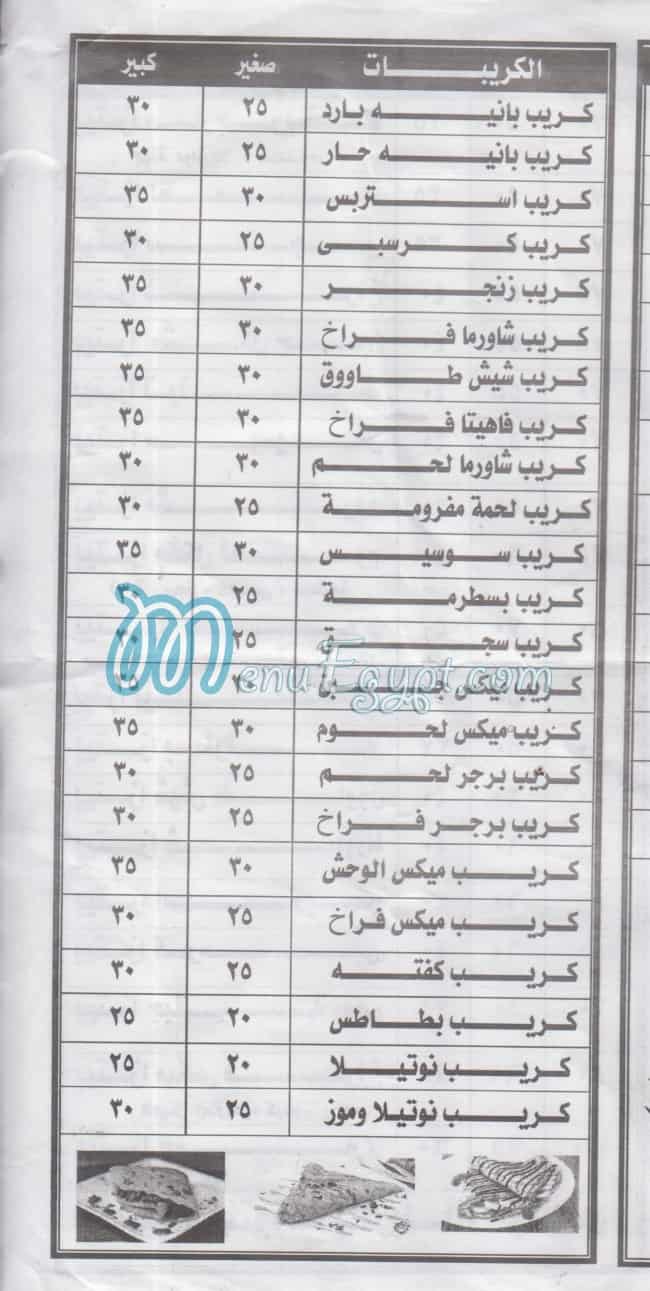 الكريبات صغير كبير
كريب بانيه بارد ٢٥ ٣٠
كريب بانيه حار ٢٥ ٣٠
كريب استربس ٣٠ ٣٥
كريب كرسبى ٢٥ ٣٠
كريب زنجر ٣٠ ٣٥
كريب شاورما فراخ ٣٠ ٣٥
كريب شيش طاووق ٣٠ ٣٥
كريب فاهيتا فراخ ٣٠ ٣٥
كريب شاورما لحم ٣٠ ٣٠
كريب لحمة مفرومة ٢٥ ٣٠
كريب سوسيس ٣٠ ٣٥
كريب بسطرمة ٢٥ ٣٠
كريب سجق ٢٥
كريب ميكس
MenuEgypt.com
كريب ميكس لحوم ٣٠ ٣٥
كريب برجر لحم ٢٥ ٣٠
كريب برجر فراخ ٢٥ ٣٠
كريب ميكس الوحش ٣٠ ٣٥
كريب ميكس فراخ ٢٥ ٣٠
كريب كفته ٢٥ ٣٠
كريب بطاطس ٢٠ ٢٥
كريب نوتيلا ٢٠ ٢٥
كريب نوتيلا وموز ٢٥ ٣٠